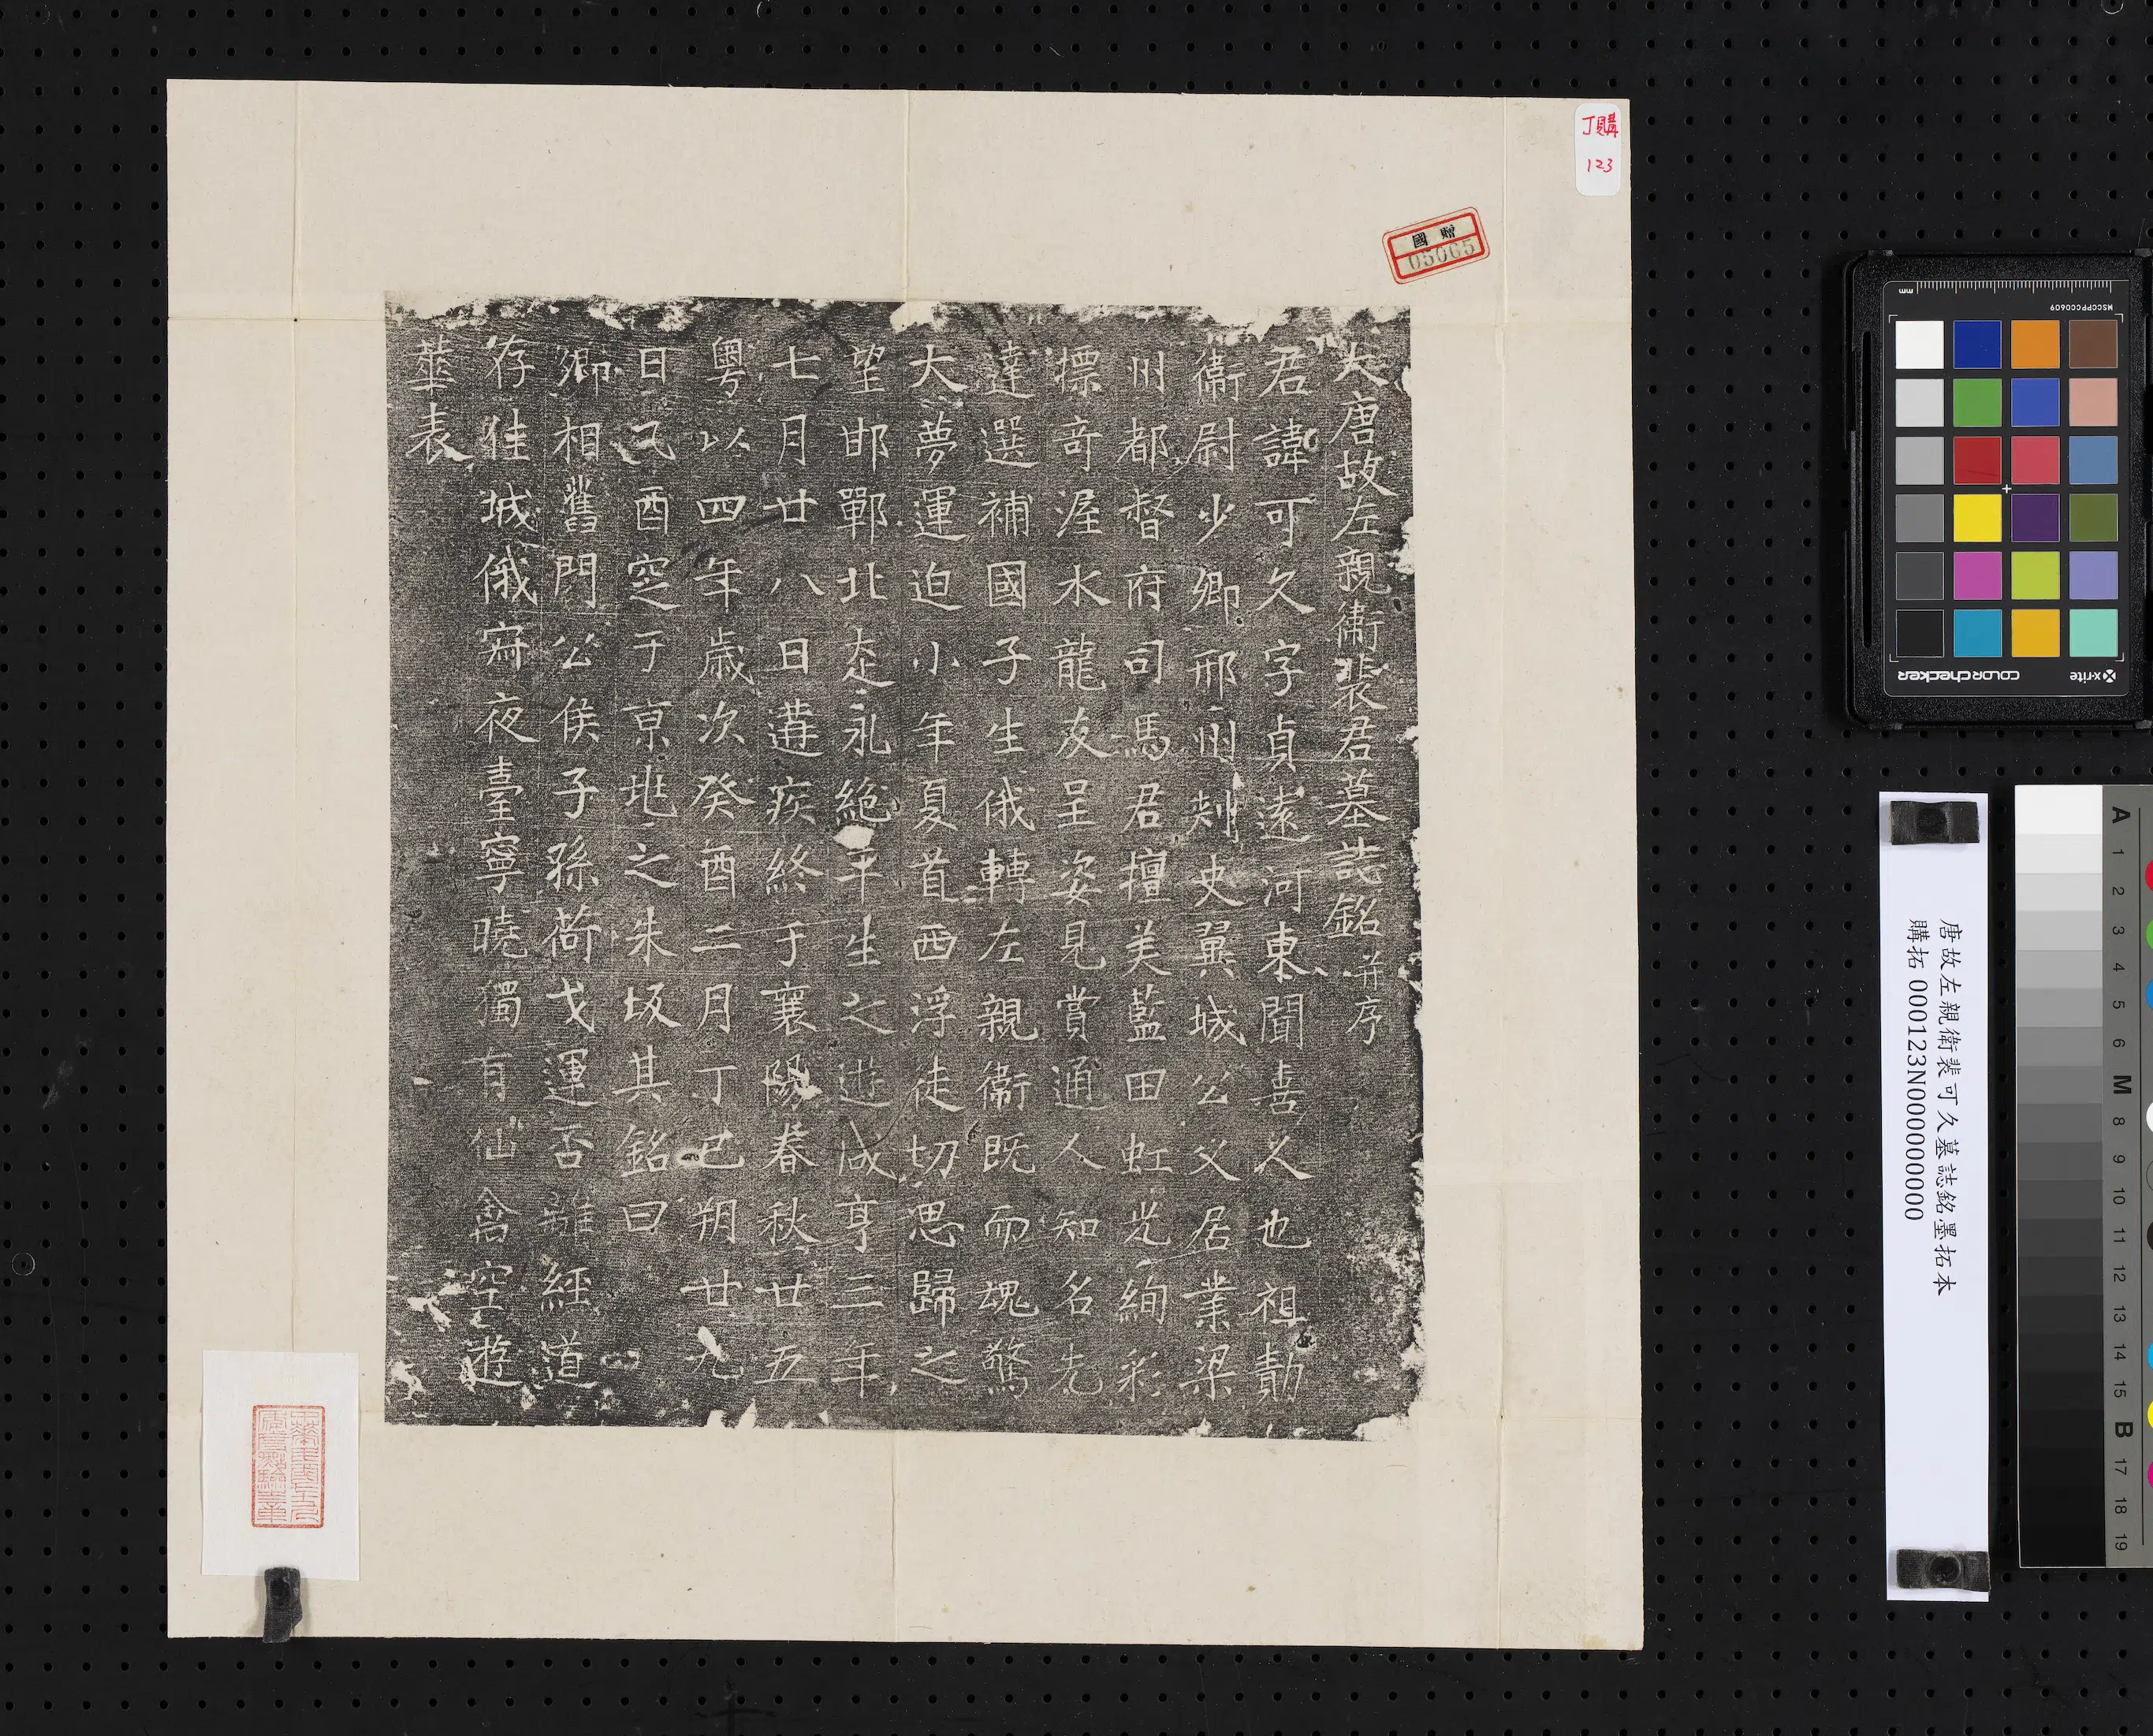 大唐故左親衛裴君墓誌銘并序
君諱可久字貞遠河東聞喜人也祖勣
衛尉少卿邢州刾史翼城公父居業梁
州都督府司馬君擅美藍田虹光絢彩
摽奇渥水龍友呈姿見賞通人知名先
達選補國子生俄轉左親衛既而魂驚
大夢運迫小年夏首西浮徒切思歸之
望邯鄲北走永絕平生之遊咸亨三年
七月廿八日遘疾終于襄陽春秋廿五
粵以四年歲次癸酉二月丁巳朔廿九
日己酉窆于京兆之朱坂其銘曰
卿相舊門公侯子孫荷戈運否離經道
存佳城俄穸夜臺寧曉獨有仙禽空遊
華表
丁購
123
國贈
05065
唐故左親衛裴可久墓誌銘墨拓本
購拓 000123N000000000
MSCCPPCC0609
mm
x-rite
colorchecker
A 1 2 3 4 5 6 M 8 9 10 11 12 13 14 15 B 17 18 19